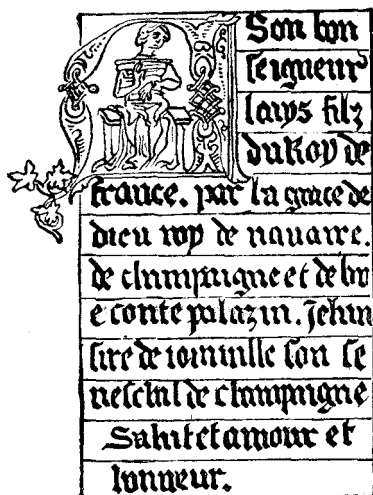 A Son bon
seigneur
looys filz
du Roy de
france. par la grace de
dieu roy de nauarre.
de champaigne et de bri
e conte palazin. Jehan
sire de ioinuille son se
neschal de champaigne
Salut et amour et
honneur.